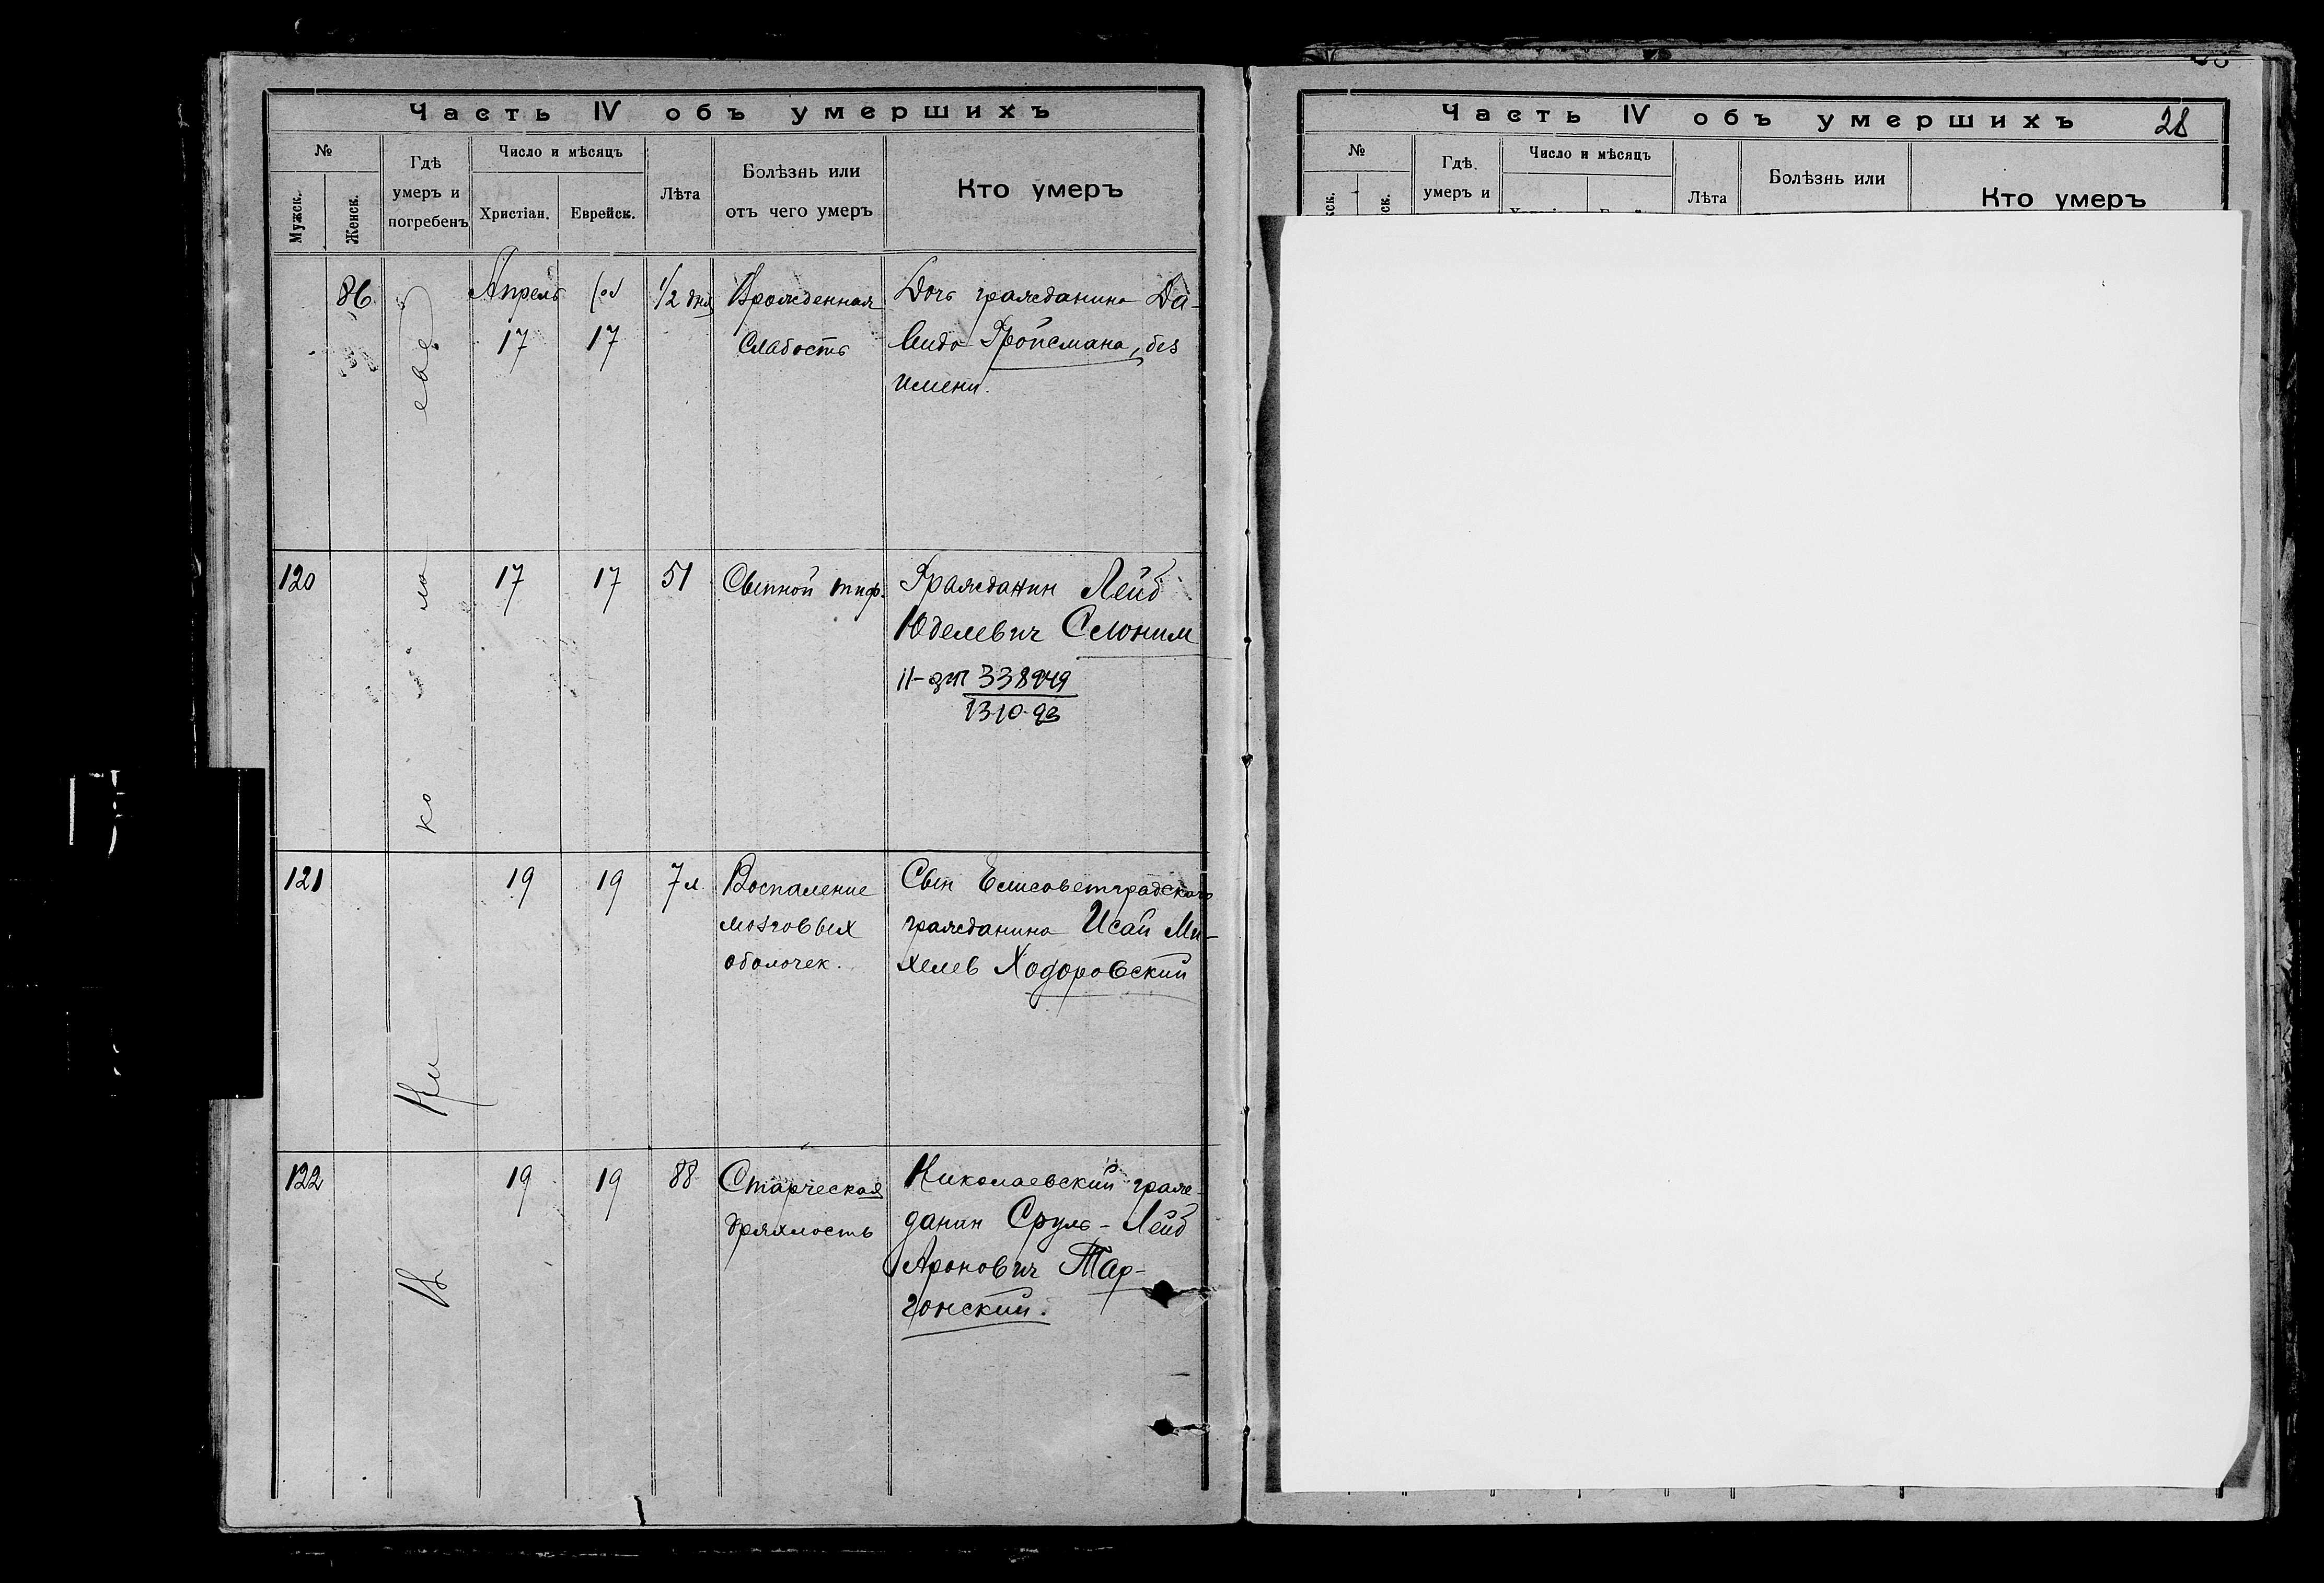 Часть IV объ умершихъ
№
Мужск.
Женск.
Гдѣ
умеръ и
погребенъ
Число и мѣсяцъ
Христіан.
Еврейск.
Лѣта
Болѣзнь или
отъ чего умеръ
Кто умеръ
86
Апрель
17
17
1/2 дня
Врожденная
Слабость
Дочь гражданина Да-
вида Гройсмана, без
имени.
120
17
17
51
Сыпной тиф.
Гражданин Лейб
Юделевич Слоним
13-10-93
121
19
19
7 л.
Воспаление
мозговых
оболочек.
Сын Елисаветградского
гражданина Исай Ми-
хелев Ходоровский
122
19
19
88
Старческая
дряхлость
Николаевский граж-
данин Сруль-Лейб
Аронович Тар-
гонский.
В
Ни
ко
ла
еве
Часть IV объ умершихъ
28
№
Гдѣ
умеръ и
Число и мѣсяцъ
Лѣта
Болѣзнь или
Кто умеръ